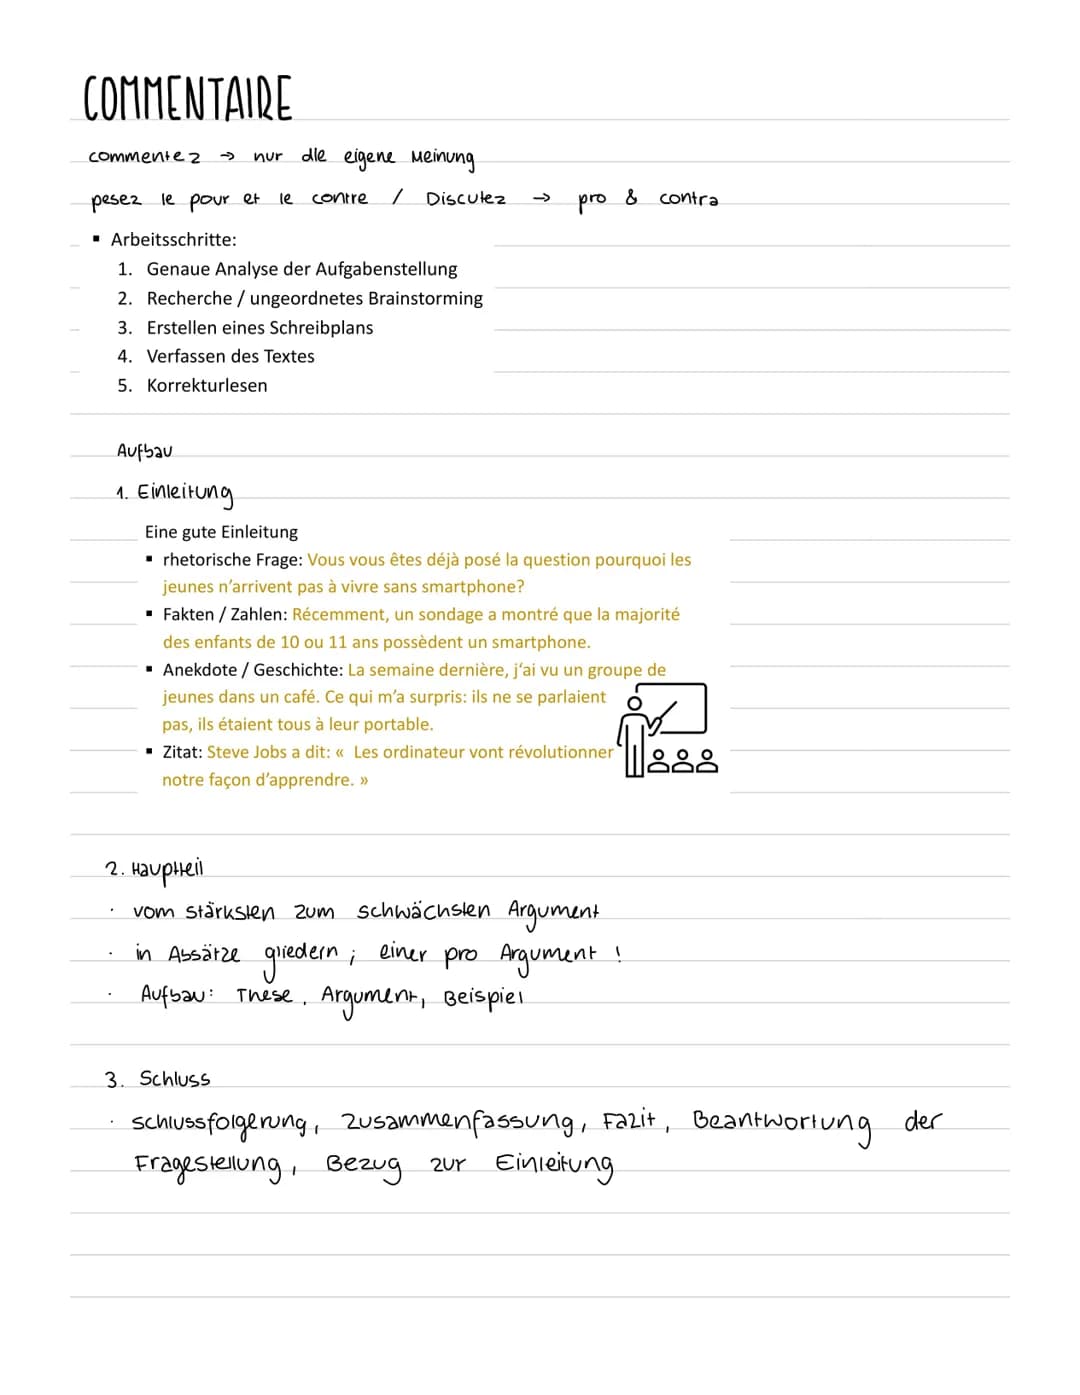 COMMENTAIRE
commentez → nur die eigene Meinung
pesez le pour et le contre / Discutez → pro & contra
▪ Arbeitsschritte:
1. Genaue Analyse der Aufgabenstellung
2. Recherche / ungeordnetes Brainstorming
3. Erstellen eines Schreibplans
4. Verfassen des Textes
5. Korrekturlesen
Aufbau
1. Einleitung
Eine gute Einleitung
▪ rhetorische Frage: Vous vous êtes déjà posé la question pourquoi les
jeunes n'arrivent pas à vivre sans smartphone?
▪ Fakten / Zahlen: Récemment, un sondage a montré que la majorité
des enfants de 10 ou 11 ans possèdent un smartphone.
▪ Anekdote / Geschichte: La semaine dernière, j'ai vu un groupe de
jeunes dans un café. Ce qui m'a surpris: ils ne se parlaient
pas, ils étaient tous à leur portable.
▪ Zitat: Steve Jobs a dit: « Les ordinateur vont révolutionner
notre façon d'apprendre. »
2. Hauptteil
· vom stärksten zum schwächsten Argument
· in Absätze gliedern ; einer pro Argument !
· Aufbau: These, Argument, Beispiel
3. Schluss
· schlussfolgerung, Zusammenfassung, Fazit, Beantwortung der
Fragestellung, Bezug zur Einleitung